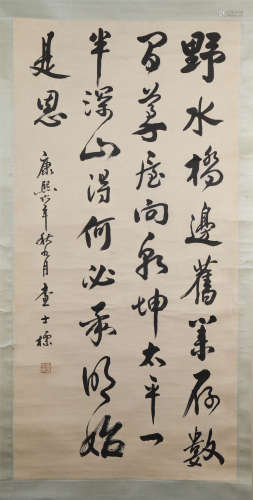 野水橋邊舊業存數
間茅屋向乾坤太平一
半深山得何必承明始
是恩
康熙六年秋月查士標